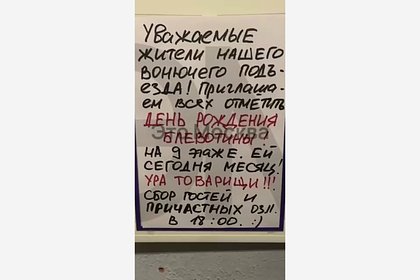 Уважаемые
жители нашего
вонючего подъ-
езда! Приглаша-
ем всех отметить
ДЕНЬ РОЖДЕНИЯ
БЛЕВОТИНЫ
Это Москва
на 9 этаже. Ей
сегодня месяц!
УРА ТОВАРИЩИ!!!
Сбор гостей и
причастных 03.11.
в 18:00. :)